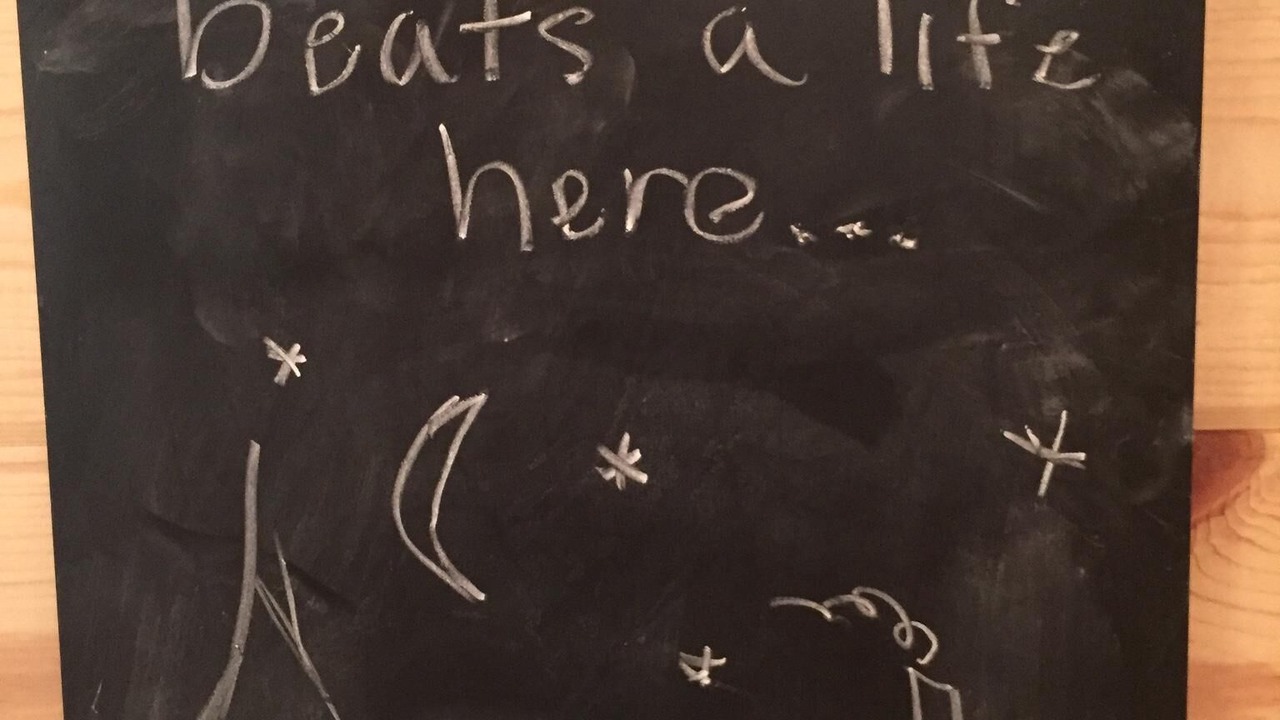 beats a life
here...